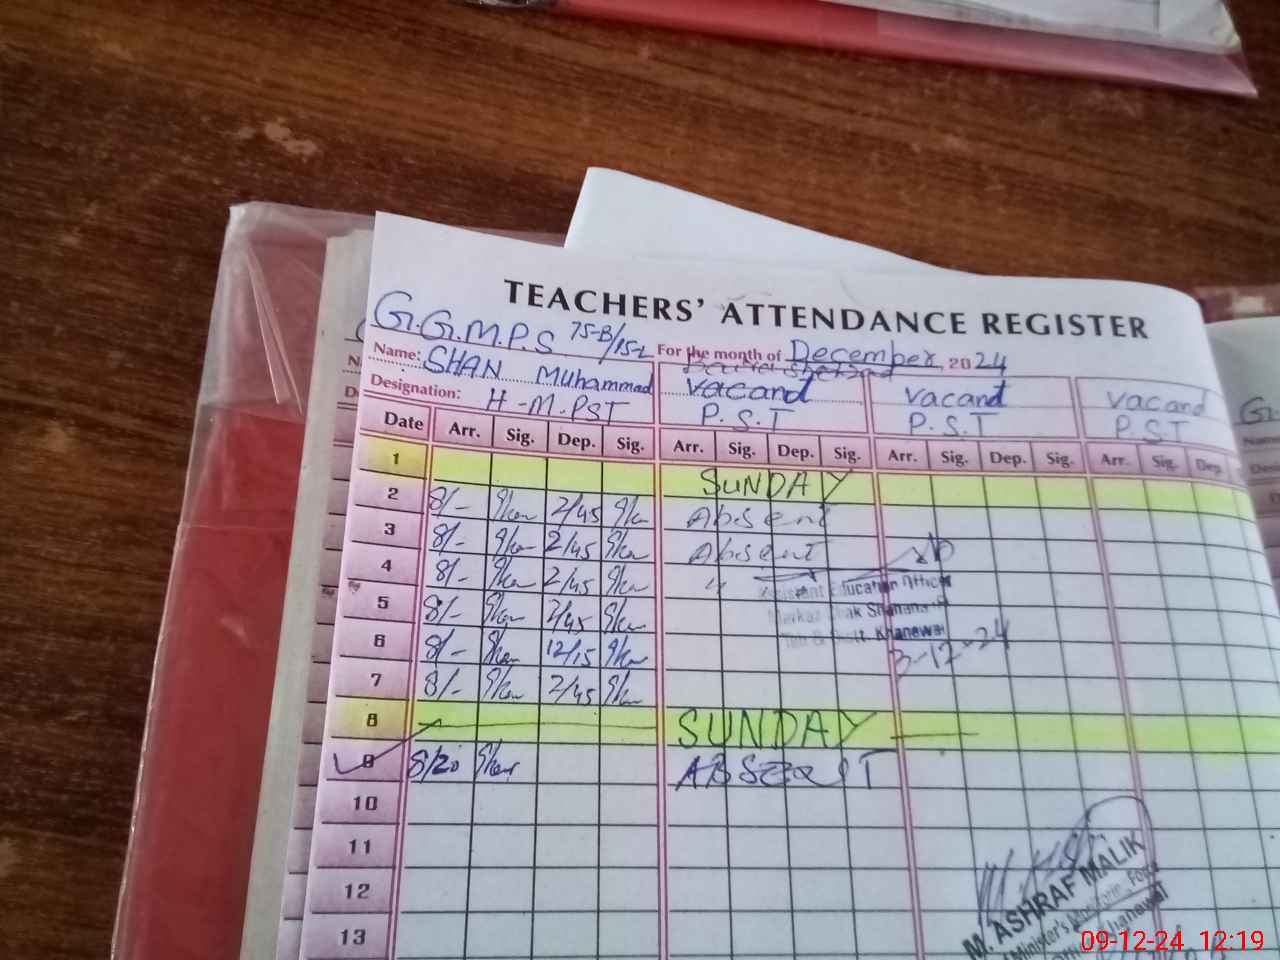 TEACHERS' ATTENDANCE REGISTER
G.G.M.P.S 75-B/15-L For the month of December, 2024
Name: SHAN Muhammad vacand vacand vacand
Designation: H-M.PST P.S.T P.S.T P.S.T
Date Arr. Sig. Dep. Sig. Arr. Sig. Dep. Sig. Arr. Sig. Dep. Sig. Arr. Sig. Dep
1 SUNDAY
2 8/- 2/45 Absent
3 8/- 2/45 Absent
4 8/- 2/45 "
Assistant Education Officer
5 8/- 2/45
Markaz Shamana
Khanewal
6 8/- 12/15
3-12-24
7 8/- 2/45
8 SUNDAY
9 8/20 ABSENT
10
11
12
13
M. ASHRAF MALIK
Minister's
Khanewal
09-12-24 12:19